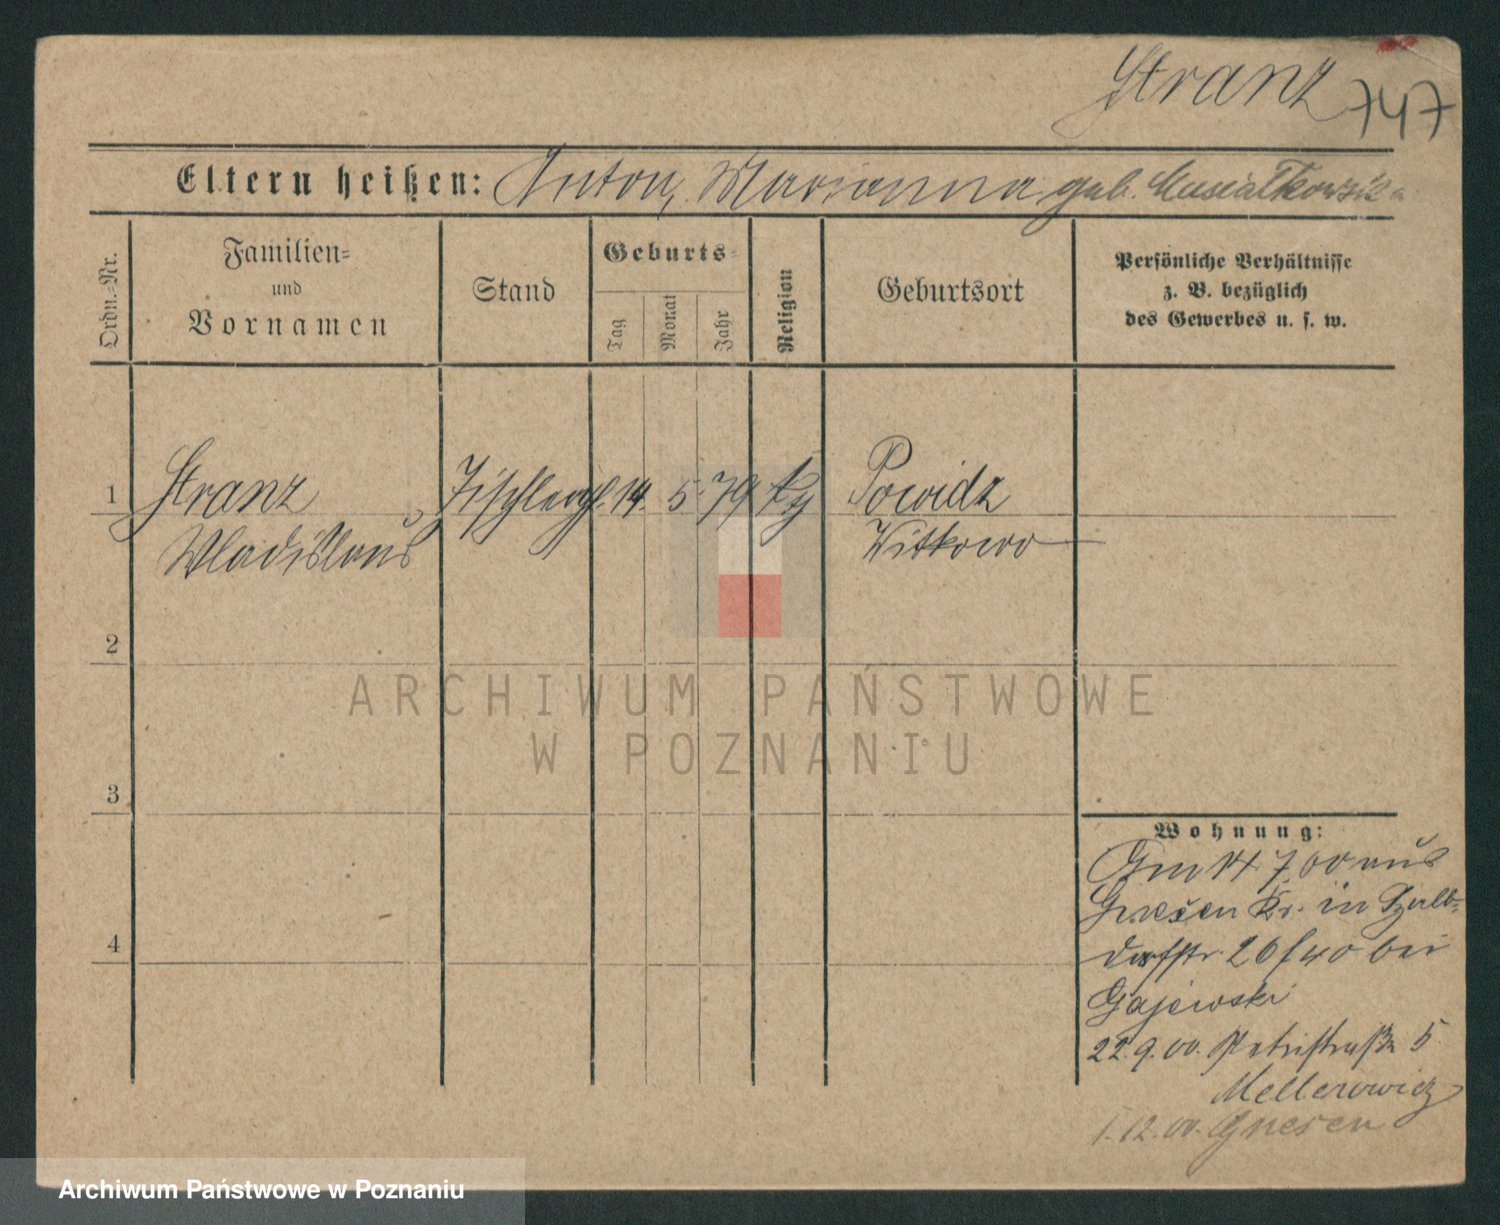 Stranz 747
Eltern heißen: Anton, Marianna geb. Musiałkowska
Ordn.-Nr.
Familien-
und
Vornamen
Stand
Geburts-
Tag
Monat
Jahr
Religion
Geburtsort
Persönliche Verhältnisse
z. B. bezüglich
des Gewerbes u. s. w.
1 Stranz Tischlergs. 14. 5. 79 kg Powidz
Wladislaus Witkowo
2
3
4
Wohnung:
14 7 00 aus
Gnesen Kr. in
26 bei
Gajewski
22.9.00. Petristraße 5
Mellerowicz
1.12.00. Gnesen
ARCHIWUM PAŃSTWOWE
W POZNANIU
Archiwum Państwowe w Poznaniu